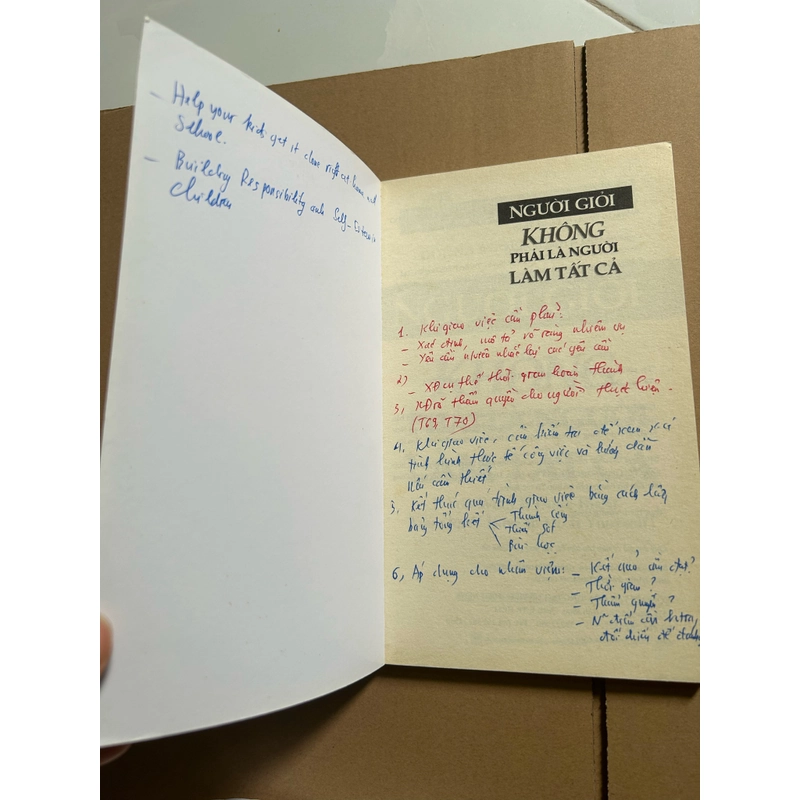 - Help your kids get it done right at home and
School.
- Building Responsibility and Self-Esteem in
Children
NGƯỜI GIỎI
KHÔNG
PHẢI LÀ NGƯỜI
LÀM TẤT CẢ
1. Khi giao việc cần phải:
- Xác định, mô tả rõ ràng nhiệm vụ
- Yêu cầu nhân nhắc lại các yêu cầu
2)
- XĐ cụ thể thời gian hoàn thành
3, XĐ rõ thẩm quyền cho người thực hiện.
(T69, T70)
4. Khi giao việc, cần kiểm tra để xem xét
tình hình thực tế công việc và hướng dẫn
nếu cần thiết
5. Kết thúc quá trình giao việc bằng cách lập
bảng tổng kết
Thành công
Thiếu sót
Bài học
6, Áp dụng cho nhân viên:
- Kết quả cần đạt?
- Thời gian?
- Thẩm quyền?
- N~ điều cần
để